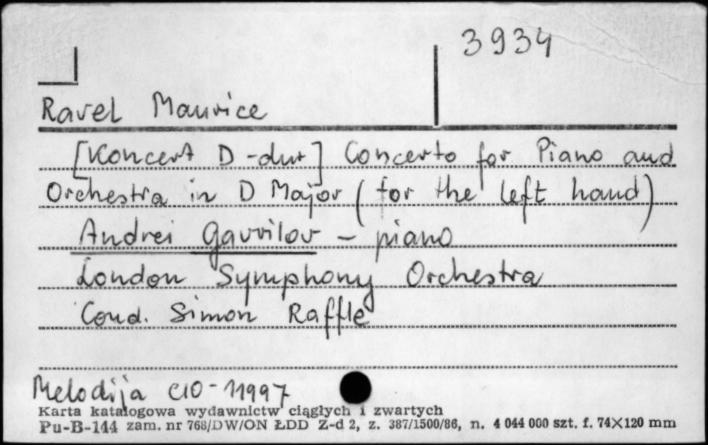 3934
Ravel Maurice
[Koncert D-dur] Concerto for Piano and
Orchestra in D Major (for the left hand)
Andrei Gavrilov - piano
London Symphony Orchestra
Cond. Simon Raffle
Melodija C10-11997
Karta katalogowa wydawnictw ciągłych i zwartych
Pu-B-144 zam. nr 768/DW/ON ŁDD Z-d 2, z. 387/1500/86, n. 4 044 000 szt. f. 74×120 mm